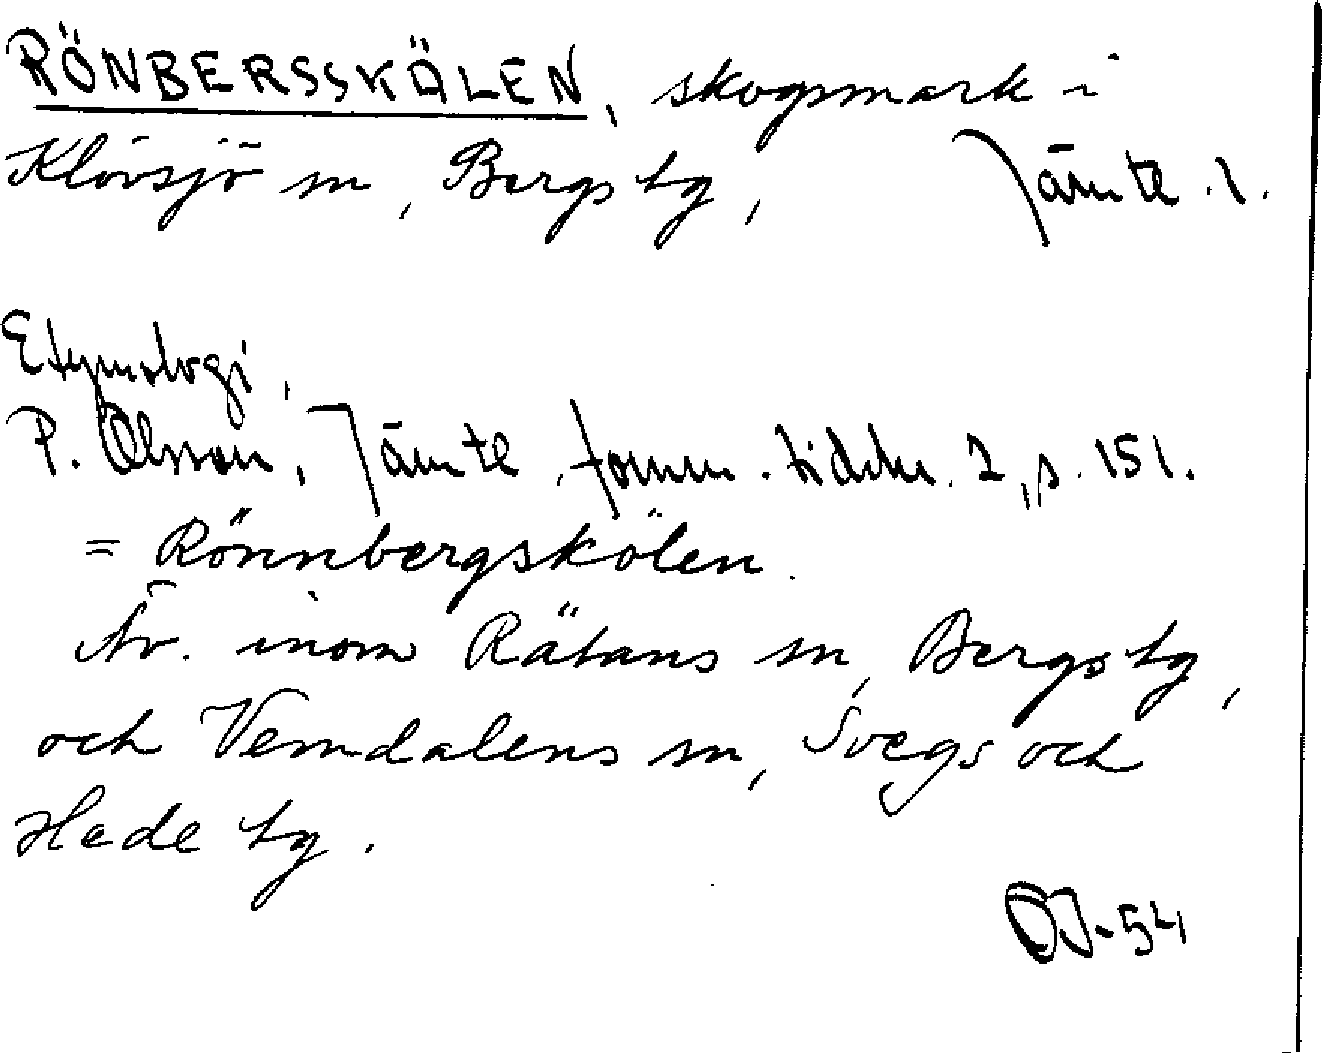 RÖNBERSSKÄLEN, skogsmark i
Klövsjö sn, Bergs tg, Jämtl. l.
Etymologi,
P. Olsson, Jämtl. fornm. tidskr. 2, s. 151.
= Rönnbergskölen.
Äv. inom Rätans sn, Bergs tg,
och Vemdalens sn, Svegs och
Hede tg.
OJ-54